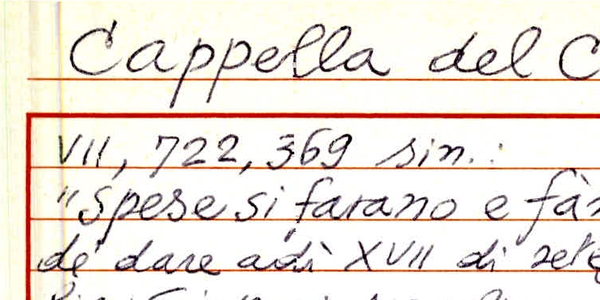 Cappella del C
VII, 722, 369 sin.:
"Spese si farano e fàn
de' dare adì XVII di sete